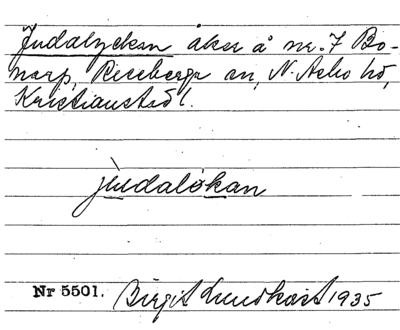 Judalyckan åker å nr. 7 Bo-
narp, Riseberga sn, N. Åsbo hd,
Kristianstad l.
judalökan
Nr 5501. Birgit Lundkvist 1935